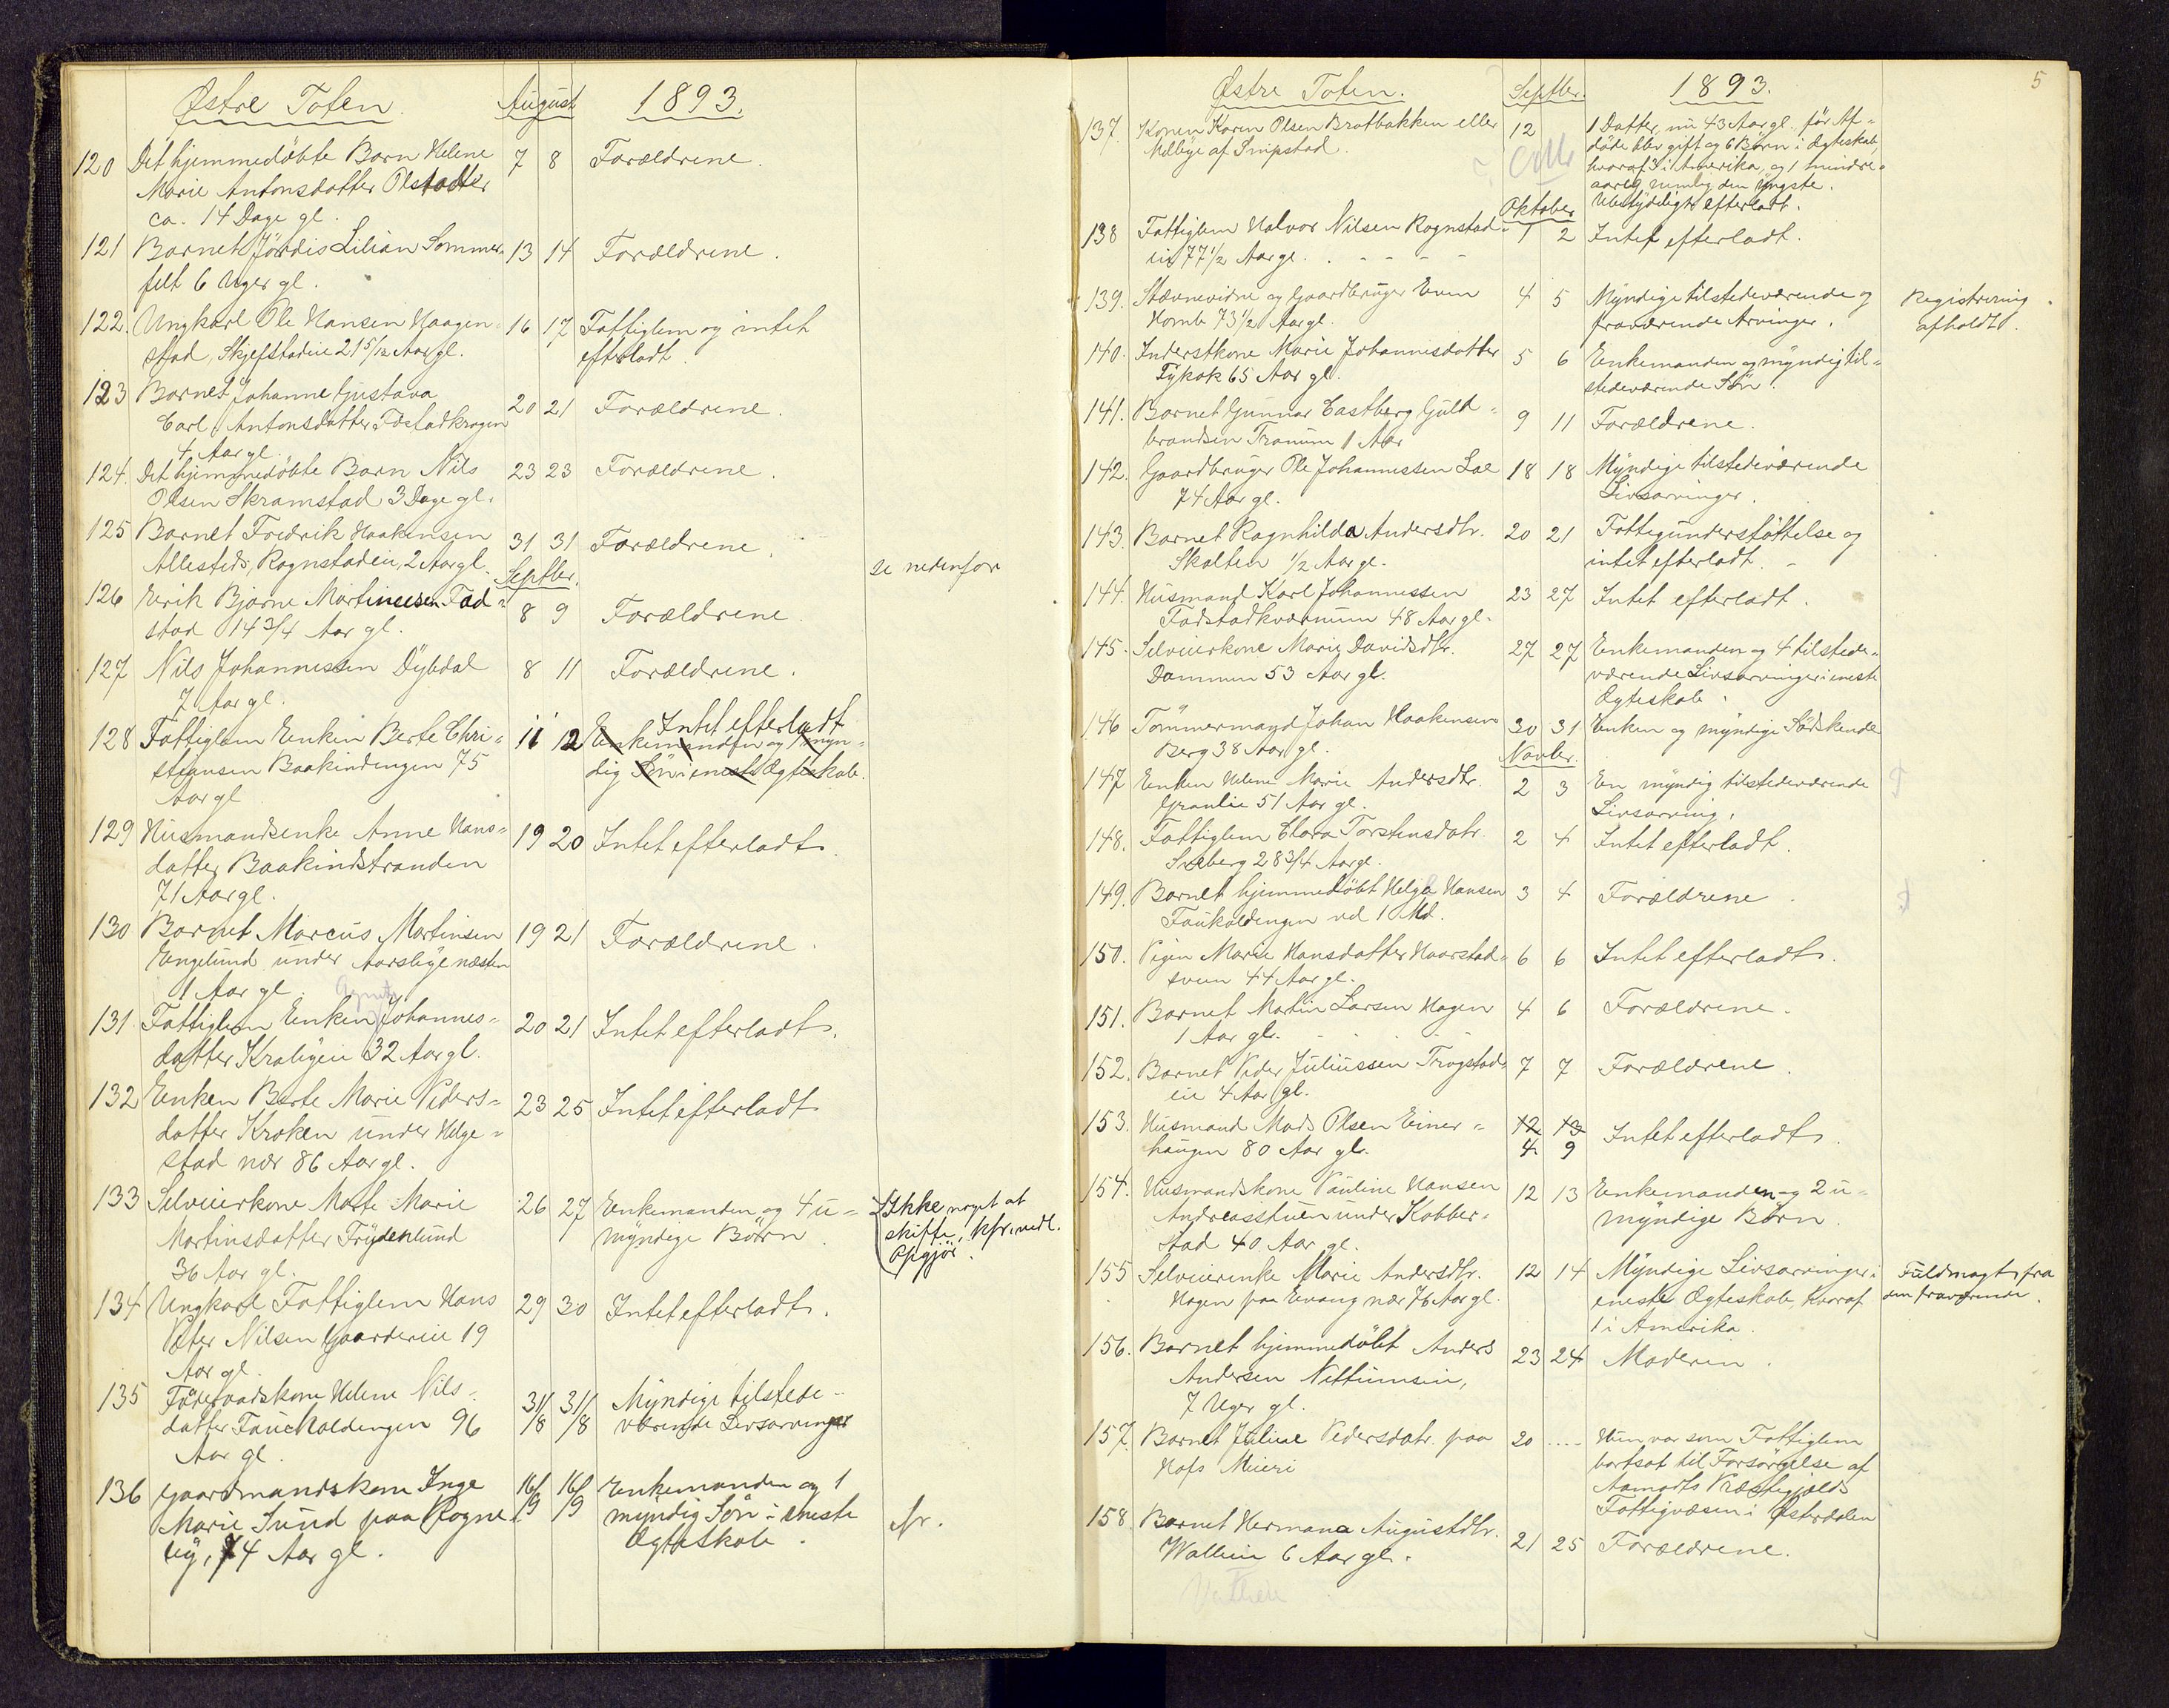 Østre Toten. August 1893.
120 Det hjemmedøbte Barn Helene 7 8 Forældrene.
Marie Antonsdatter Olstad
ca. 14 Dage gl.
121 Barnet Jørdis Lilian Sommer- 13 14 Forældrene.
felt 6 Uger gl.
122. Ungkarl Ole Hansen Haagen- 16 17 Fattiglem og intet
stad, Skjefstadeie 21 5/12 Aar gl. efterladt.
123 Barnet Johanne Gustava
Carl Antonsdatter Fdstadkragen 20 21 Forældrene.
4 Aar gl.
124. Det hjemmedøbte Barn Nils 23 23 Forældrene.
Olsen Skramstad 3 Dage gl.
125 Barnet Fredrik Haakensen 31 31 Forældrene.
Allesteds, Rognstadeie, 2 Aar gl. se nedenfor
Septbr.
126 Eirik Bjarne Martinesen Fad- 8 9 Forældrene.
stad 14 3/4 Aar gl.
127 Nils Johannessen Dybdal 8 11 Forældrene.
7 Aar gl.
Intet efterladt
128 Fattiglem Enken Berte Chri- 11 12 Enkemanden og 1 myn-
stiansen Baakindengen 75 dig Søn i eneste Ægteskab.
Aar gl
129 Husmandsenke Anne Hans- 19 20 Intet efterladt.
datter Baakindstranden
71 Aar gl.
130 Barnet Marcus Martinsen 19 21 Forældrene.
Engelund under Aarslye næsten
1 Aar gl.
131 Fattiglem Enken Johannes- 20 21 Intet efterladt.
datter Krabyeie 32 Aar gl.
132 Enken Berte Marie Peders- 23 25 Intet efterladt
datter Kroken under Helge-
stad nær 86 Aar gl.
133 Selveierkone Marte Marie 26 27 Enkemanden og 4 u- Ikke noget at
Martinsdatter Frydenlund myndige Børn. skifte, kfr. vedl.
36 Aar gl. Opgjør.
134 Ungkarl Fattiglem Hans 29 30 Intet efterladt.
Peter Nilsen Gaardereie 19
Aar gl.
135 Føderaadskone Helene Nils- 31/8 31/8 Myndige tilstede-
datter Fauchaldengen 96 værende Livsarvinger
Aar gl.
136 Gaardmandskone Inge 16/9 16/9 Enkemanden og 1
Marie Sund paa Rogne- myndig Søn i eneste
by, 74 Aar gl. Ægteskab.
Østre Toten. Septbr. 1893. 5
137. Konen Karen Olsen Bratbakken eller 12 1 Datter, nu 43 Aar gl. før Af-
Melbye af Snipstad. døde blev gift og 6 Børn i Ægteskab,
hvoraf 3 i Amerika, og 1 mindre-
aarig, nemlig den yngste.
Ubetydeligt efterladt.
Oktober
138 Fattiglem Halvor Nilsen Rognstad- 1 2 Intet efterladt.
eie 77 1/2 Aar gl.
139. Stævnevidne og Gaardbruger Even 4 5 Myndige tilstedeværende og Registrering
Homb 73 1/2 Aar gl. fraværende Arvinger. afholdt.
140. Inderstkone Marie Johannesdatter 5 6 Enkemanden og myndig til-
Tykok 65 Aar gl. stedeværende Søn.
141. Barnet Gunnar Castberg Guld- 9 11 Forældrene.
brandsen Tranum 1 Aar
142. Gaardbruger Ole Johannessen Lae 18 18 Myndige tilstedeværende
74 Aar gl. Livsarvinger.
143. Barnet Ragnhilda Andersdtr. 20 21 Fattigunderstøttelse og
Skolten 1/2 Aar gl. intet efterladt.
144. Husmand Karl Johannessen 23 27 Intet efterladt.
Fadstadkværnum 48 Aar gl.
145. Selveierkone Marie Davidsdtr. 27 27 Enkemanden og 4 tilstede-
Dammen 53 Aar gl. værende Livsarvinger i eneste
Ægteskab.
146 Tømmermand Johan Haakensen 30 31 Enken og myndige Sødskende
Berg 38 Aar gl.
Novbr.
147 Enken Helene Marie Andersdtr. 2 3 En myndig tilstedeværende
Granlie 51 Aar gl. Livsarving.
148. Fattiglem Clara Torstensdatr. 2 4 Intet efterladt.
Sneberg 28 3/4 Aar gl.
149. Barnet hjemmedøbt Helga Hansen 3 4 Forældrene.
Faukaldengen vd 1 Md.
150. Pigen Marie Hansdatter Haarstad- 6 6 Intet efterladt.
sveen 44 Aar gl.
151. Barnet Martin Larsen Hagen 4 6 Forældrene.
1 Aar gl.
152. Barnet Peder Juliussen Trogstad- 7 7 Forældrene.
eie 4 Aar gl.
153. Husmand Mads Olsen Einer- 12 13 Intet efterladt.
haugen 80 Aar gl. 4 9
154. Husmandskone Pauline Hansen 12 13 Enkemanden og 2 u-
Andreasstuen under Kobber- myndige Børn.
stad 40 Aar gl.
155 Selveierenke Marie Andersdtr. 12 14 Myndige Livsarvinger i Fuldmagt fra
Hagen paa Evang nær 76 Aar gl. eneste Ægteskab, hvoraf den fraværende.
1 i Amerika.
156. Barnet hjemmedøbt Anders 23 24 Moderen.
Andersen Nettumseie,
7 Uger gl.
157. Barnet Juline Pedersdatr. paa 20 .... Hun var som Fattiglem
Hofs Meieri bortsat til Forsørgelse af
Aamodts Præstegjelds
Fattigvæsen i Østerdalen
158. Barnet Hermana Augustdtr. 21 25 Forældrene.
Walleie 6 Aar gl.